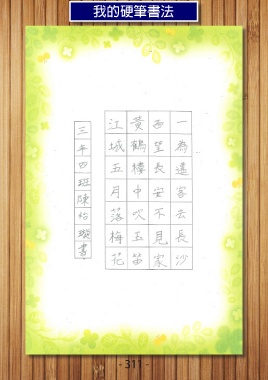 我的硬筆書法
一為遷客去長沙
西望長安不見家
黃鶴樓中吹玉笛
江城五月落梅花
三年四班陳怡璇書
- 311 -